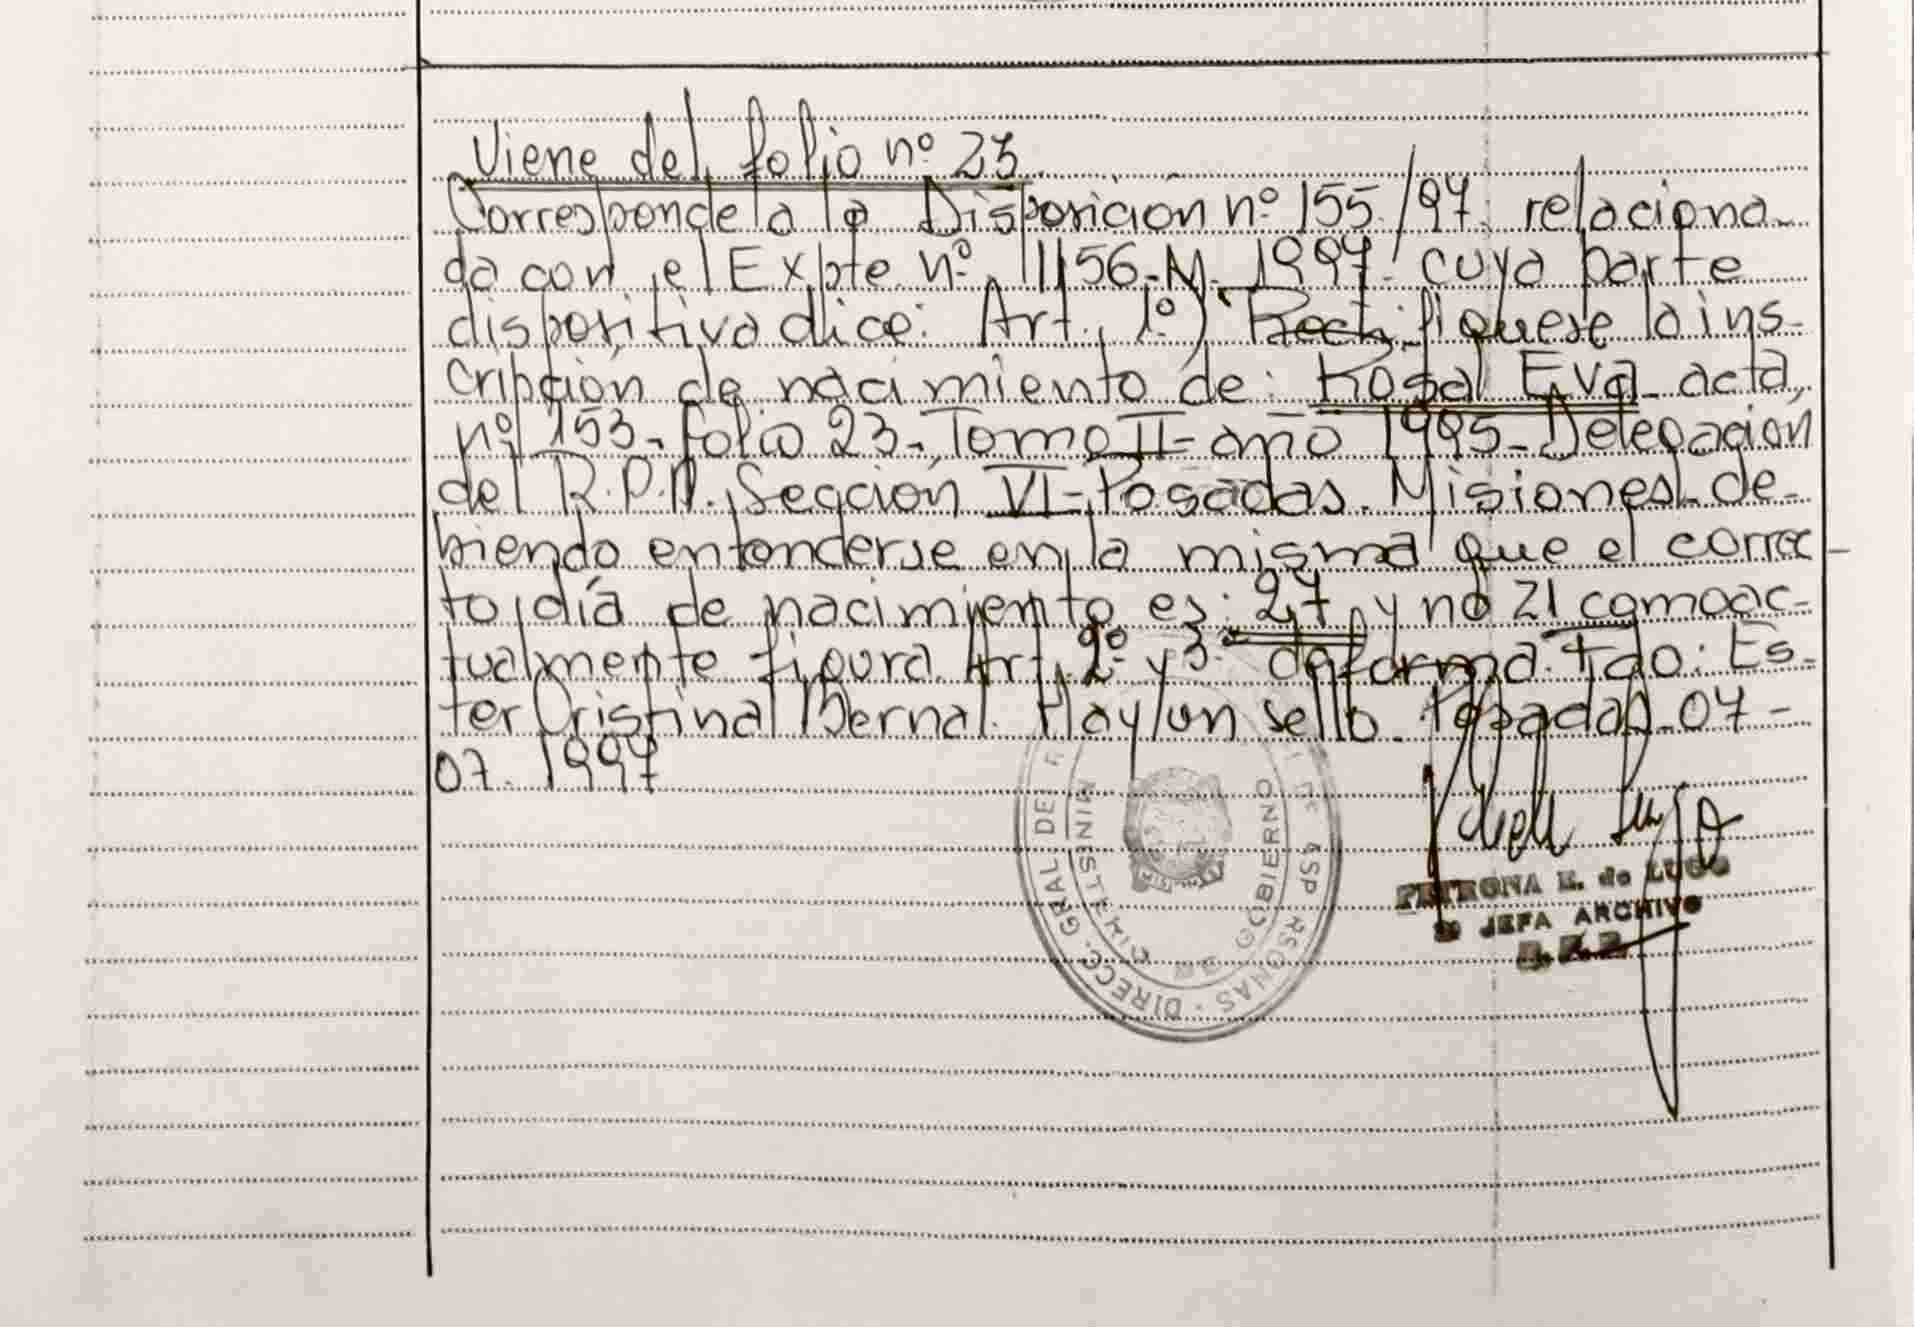 Viene del folio nº 23
Corresponde a la Disposición nº 155/97. relaciona-
da con el Expte. nº. 1156-M-1997. cuya parte
dispositiva dice: Art. 1º) Rectifíquese la ins-
cripción de nacimiento de: Rosal Eva acta,
nº 153-folio 23-Tomo II-año 1995-Delegación
del R.P.P. Sección VI-Posadas. Misiones-de-
biendo entenderse en la misma que el correc-
to día de nacimiento es: 27 y no 21 como ac-
tualmente figura. Art. 2º y 3º de forma. Fdo: Es-
ter Cristina Bernal. Hay un sello. Posadas-07-
07-1997
DIRECC. GRAL DEL R
PERSONAS
MINISTERIO DE GOBIERNO
PETRONA E. de LUGO
JEFA ARCHIVO